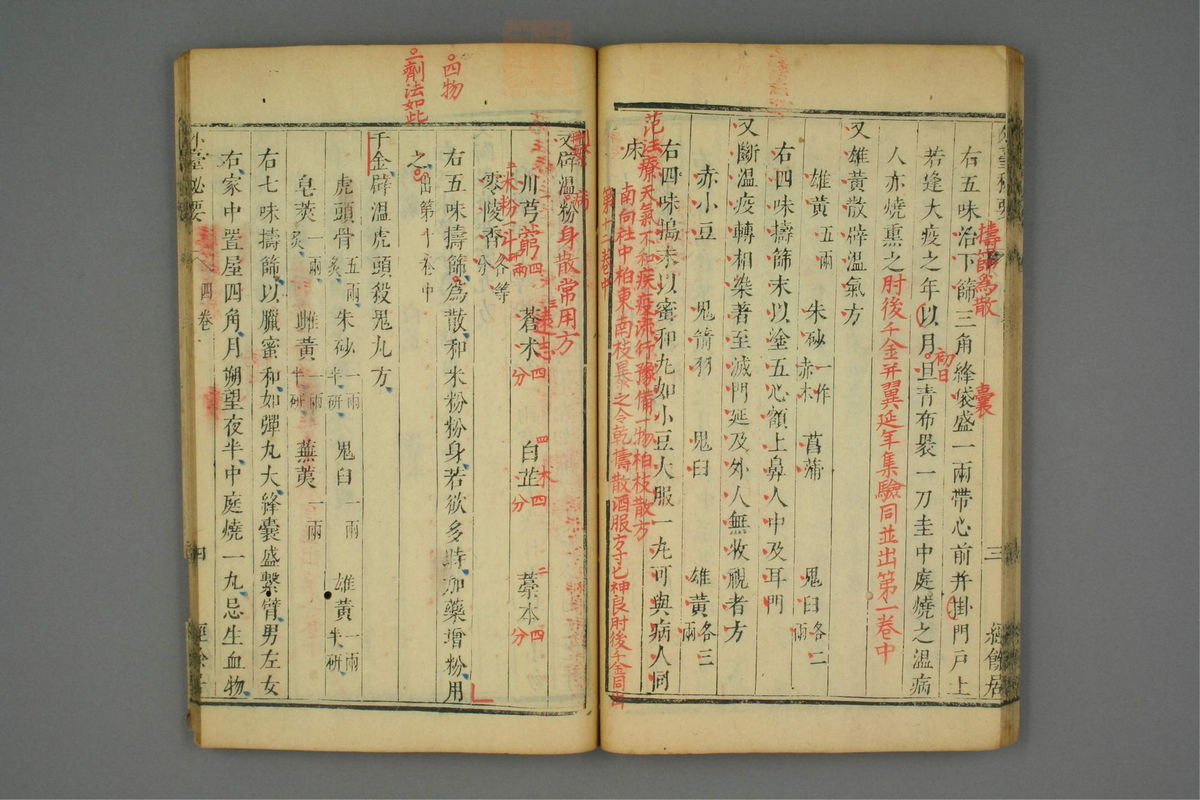 右五味治下篩三角絳袋盛一兩帶心前并掛門戶上
擣篩爲散
囊
若逢大疫之年以月旦青布裹一刀圭中庭燒之溫病
初日
人亦燒熏之
肘後千金并翼延年集驗同並出第一卷中
又雄黃散辟溫氣方
雄黃五兩 朱砂一作赤木 菖蒲 鬼臼各二兩
右四味擣篩末以塗五心額上鼻人中及耳門
又斷溫疫轉相染著至滅門延及外人無收視者方
赤小豆 鬼箭羽 鬼臼 雄黃各三兩
右四味搗末以蜜和丸如小豆大服一丸可與病人同
床
范汪療天氣不和疾疫流行豫備一物柏枝散方
南向社中柏東南枝暴之令乾擣散酒服方寸匕神良肘後千金同出
四物
一劑法如此
又辟溫粉身散常用方
川芎 蒼朮 白芷 藁本
四分 四分 四分
零陵香各等分
米粉
右五味擣篩爲散和米粉粉身若欲多時加藥增粉用
之出第十卷中
千金辟溫虎頭殺鬼丸方
虎頭骨五兩炙 朱砂一兩半研 鬼臼一兩 雄黃一兩半研
皂莢一兩炙 雌黃一兩半研 蕪荑一兩
右七味擣篩以臘蜜和如彈丸大絳囊盛繫臂男左女
右家中置屋四角月朔望夜半中庭燒一丸忌生血物
外臺秘要 四卷 四
三 經餘居